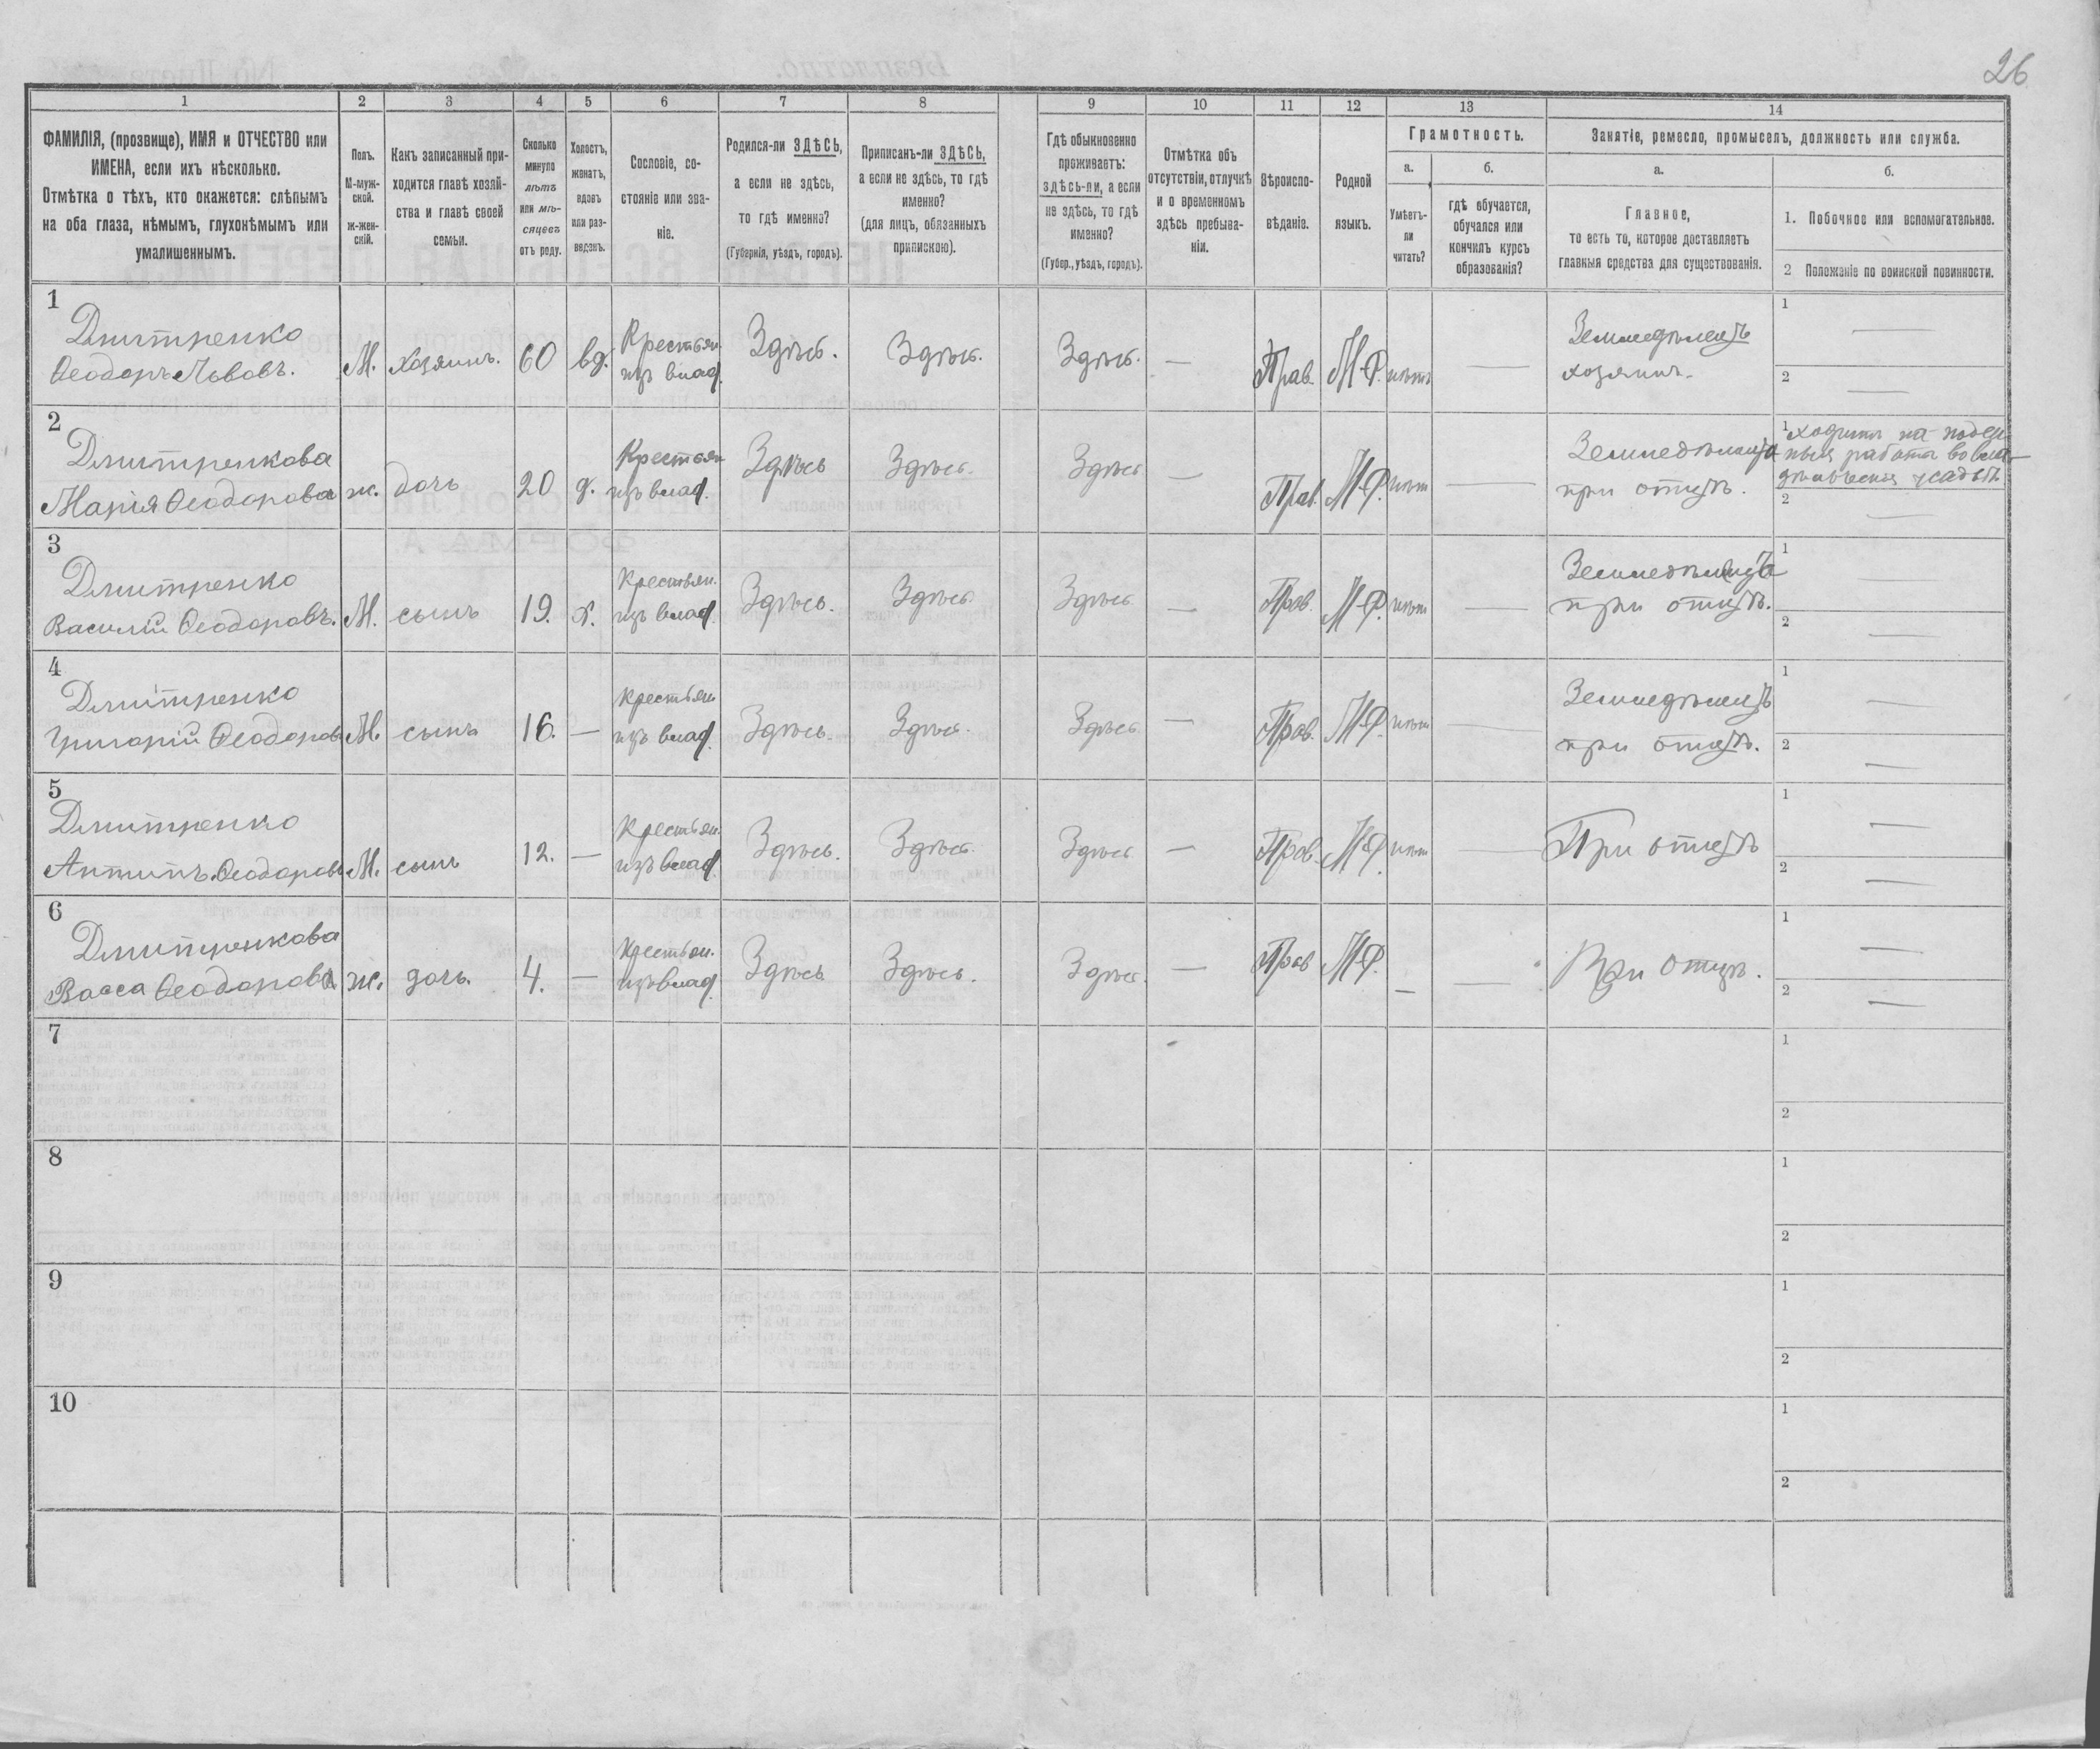 26
1 2 3 4 5 6 7 8 9 10 11 12 13 14
ФАМИЛІЯ, (прозвище), ИМЯ и ОТЧЕСТВО или
ИМЕНА, если ихъ нѣсколько.
Отмѣтка о тѣхъ, кто окажется: слѣпымъ
на оба глаза, нѣмымъ, глухонѣмымъ или
умалишеннымъ.
Полъ.
М-муж-
ской.
ж-жен-
скій.
Какъ записанный при-
ходится главѣ хозяй-
ства и главѣ своей
семьи.
Сколько
минуло
лѣтъ
или мѣ-
сяцевъ
отъ роду.
Холостъ,
женатъ,
вдовъ
или раз-
веденъ.
Сословіе, со-
стояніе или зва-
ніе.
Родился-ли ЗДѢСЬ,
а если не здѣсь,
то гдѣ именно?
(Губернія, уѣздъ, городъ).
Приписанъ-ли ЗДѢСЬ,
а если не здѣсь, то гдѣ
именно?
(для лицъ, обязанныхъ
припискою).
Гдѣ обыкновенно
проживаетъ:
здѣсь-ли, а если
не здѣсь, то гдѣ
именно?
(Губер., уѣздъ, городъ).
Отмѣтка объ
отсутствіи, отлучкѣ
и о временномъ
здѣсь пребыва-
ніи.
Вѣроиспо-
вѣданіе.
Родной
языкъ.
Грамотность.
а.
Умѣетъ-
ли
читать?
б.
гдѣ обучается,
обучался или
кончилъ курсъ
образованія?
Занятіе, ремесло, промыселъ, должность или служба.
а.
Главное,
то есть то, которое доставляетъ
главныя средства для существованія.
б.
1. Побочное или вспомогательное.
2 Положеніе по воинской повинности.
1
Дмитренко
Ѳеодоръ Львовъ. М. хозяинъ. 60 вд. Крестьян. изъ влад. Здѣсь. Здѣсь. Здѣсь. — Прав. М-Р. нѣтъ — Земледѣлецъ
хозяинъ.
1 —
2 —
2
Дмитренкова
Марія Ѳеодорова ж. дочь 20 д. Крестьян изъ влад. Здѣсь Здѣсь. Здѣсь — Прав. М-Р. нѣт — Земледѣлица
при отцѣ.
1 ходитъ на поден
ныя работы во вла-
дѣльческія усадьбы
2 —
3
Дмитренко
Василій Ѳеодоровъ. М. сынъ 19. х. Крестьян. изъ влад. Здѣсь. Здѣсь. Здѣсь — Прав. М-Р. нѣт — Земледѣлецъ
при отцѣ.
1 —
2 —
4
Дмитренко
Григорій Ѳеодоров М. сынъ 16. — Крестьян изъ влад. Здѣсь. Здѣсь. Здѣсь — Прав. М-Р. нѣт — Земледѣлецъ
при отцѣ.
1 —
2 —
5
Дмитренко
Антипъ Ѳеодоров М. сынъ 12. — Крестьян. изъ влад. Здѣсь. Здѣсь. Здѣсь — Прав. М-Р. нѣт — При отцѣ
1 —
2 —
6
Дмитренкова
Васса Ѳеодорова ж. дочь. 4. — Крестьян. изъ влад. Здѣсь Здѣсь. Здѣсь. — Прав М-Р. — — При отцѣ.
1 —
2 —
7
1
2
8
1
2
9
1
2
10
1
2